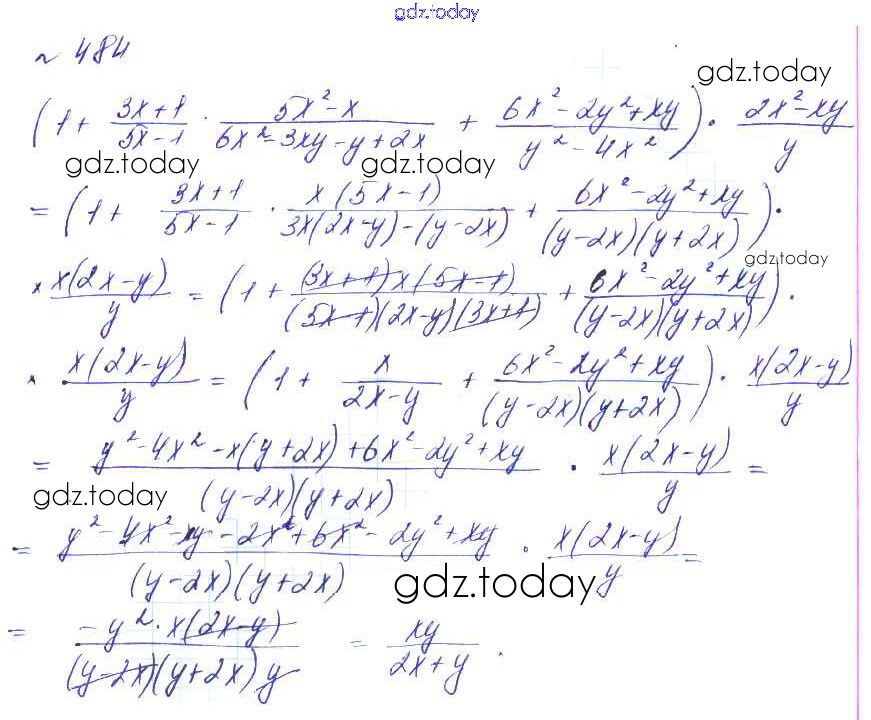 gdz.today
№ 484
(1 + (3x+1)/(5x-1) · (5x²-x)/(6x²-3xy-y+2x) + (6x²-2y²+xy)/(y²-4x²)) · (2x²-xy)/y
gdz.today
gdz.today gdz.today
= (1 + (3x+1)/(5x-1) · x(5x-1)/(3x(2x-y)-(y-2x)) + (6x²-2y²+xy)/((y-2x)(y+2x))) ·
gdz.today
× x(2x-y)/y = (1 + (3x+1)x(5x-1)/((5x-1)(2x-y)(3x+1)) + (6x²-2y²+xy)/((y-2x)(y+2x))) ·
× x(2x-y)/y = (1 + x/(2x-y) + (6x²-2y²+xy)/((y-2x)(y+2x))) · x(2x-y)/y
= (y²-4x²-x(y+2x)+6x²-2y²+xy)/((y-2x)(y+2x)) · x(2x-y)/y =
gdz.today
= (y²-4x²-xy-2x²+6x²-2y²+xy)/((y-2x)(y+2x)) · x(2x-y)/y =
gdz.today
= -y²·x(2x-y)/((y-2x)(y+2x)y) = xy/(2x+y).